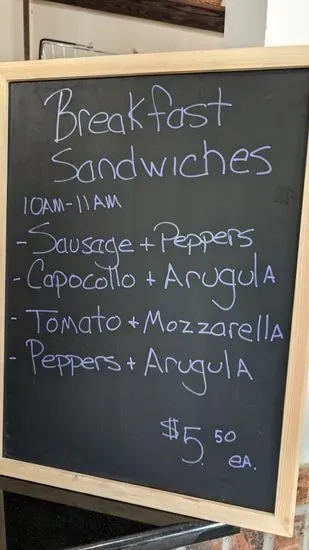 Breakfast
Sandwiches
10AM-11AM
- Sausage + Peppers
- Capocollo + Arugula
- Tomato + Mozzarella
- Peppers + Arugula
$5.50
ea.